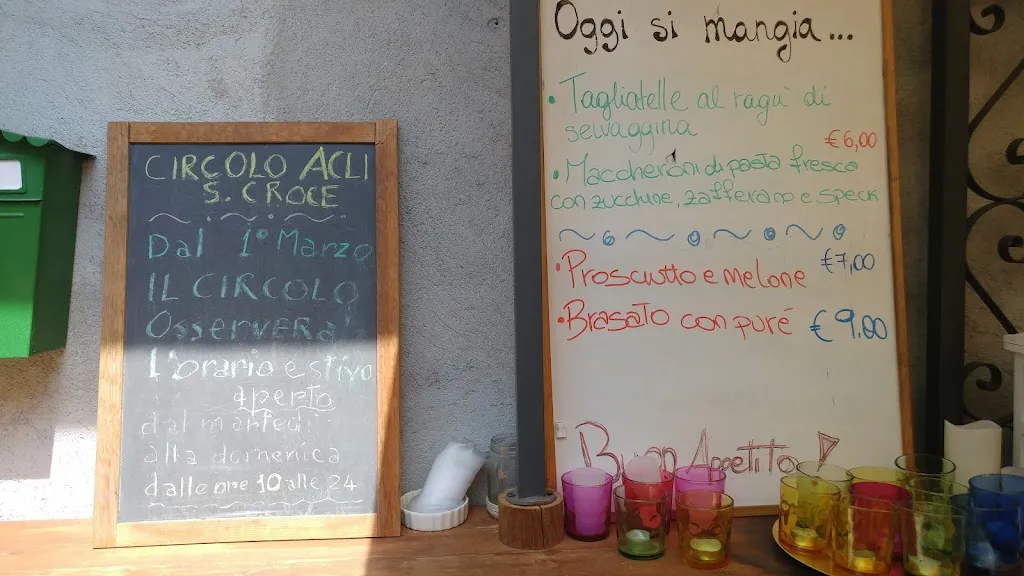 CIRCOLO ACLI
S. CROCE
Dal 1° Marzo
IL CIRCOLO
OSSERVERA'
L'orario estivo
aperto
dal martedì
alla domenica
dalle ore 10 alle 24
Oggi si mangia...
• Tagliatelle al ragù di
selvaggina
€6,00
• Maccheroni di pasta fresca
con zucchine, zafferano e speck
€7,00
• Prosciutto e melone
• Brasato con purè €9.00
Buon Appetito!